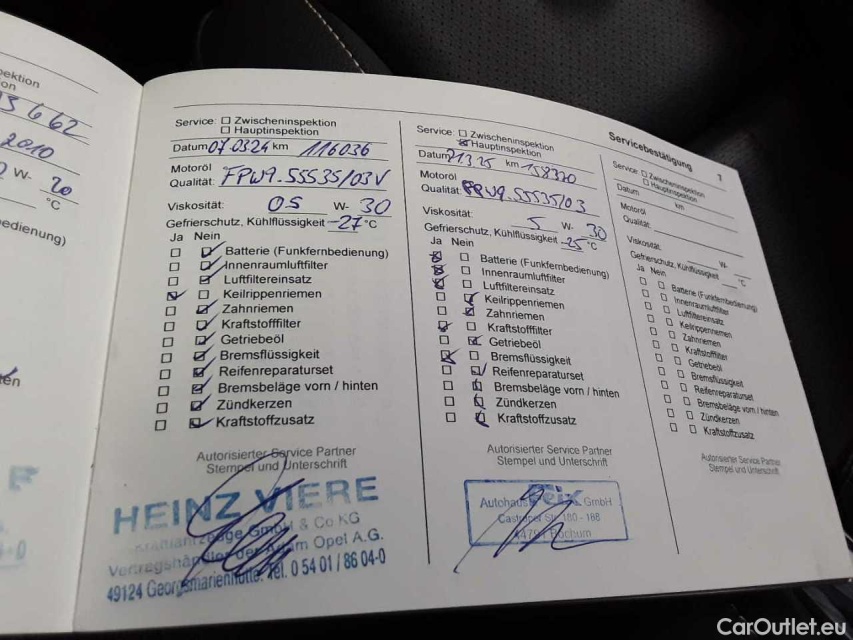 pektion
ion
2010
W- 20
°C
edienung)
en
Service: Zwischeninspektion
Hauptinspektion
Datum 07.03.24 km 116036
Motoröl
Qualität: FPW9.55535/03V
Viskosität: 05 W- 30
Gefrierschutz, Kühlflüssigkeit -27 °C
Ja Nein
Batterie (Funkfernbedienung)
Innenraumluftfilter
Luftfiltereinsatz
Keilrippenriemen
Zahnriemen
Kraftstofffilter
Getriebeöl
Bremsflüssigkeit
Reifenreparaturset
Bremsbeläge vorn / hinten
Zündkerzen
Kraftstoffzusatz
Autorisierter Service Partner
Stempel und Unterschrift
HEINZ VIERE
Kraftfahrzeuge GmbH & Co KG
Vertragshändler der Adam Opel A.G.
49124 Georgsmarienhütte, Tel. 0 54 01 / 86 04-0
Service: Zwischeninspektion
Hauptinspektion
Datum 21.3.25 km 158370
Motoröl
Qualität: FPW9.55535/03
Viskosität: 5 W- 30
Gefrierschutz, Kühlflüssigkeit -25 °C
Ja Nein
Batterie (Funkfernbedienung)
Innenraumluftfilter
Luftfiltereinsatz
Keilrippenriemen
Zahnriemen
Kraftstofffilter
Getriebeöl
Bremsflüssigkeit
Reifenreparaturset
Bremsbeläge vorn / hinten
Zündkerzen
Kraftstoffzusatz
Autorisierter Service Partner
Stempel und Unterschrift
Autohaus Feix GmbH
Castroper Str. 180 - 188
44791 Bochum
Servicebestätigung 7
Service: Zwischeninspektion
Hauptinspektion
Datum km
Motoröl
Qualität:
Viskosität: W-
Gefrierschutz, Kühlflüssigkeit °C
Ja Nein
Batterie (Funkfernbedienung)
Innenraumluftfilter
Luftfiltereinsatz
Keilrippenriemen
Zahnriemen
Kraftstofffilter
Getriebeöl
Bremsflüssigkeit
Reifenreparaturset
Bremsbeläge vorn / hinten
Zündkerzen
Kraftstoffzusatz
Autorisierter Service Partner
Stempel und Unterschrift
CarOutlet.eu